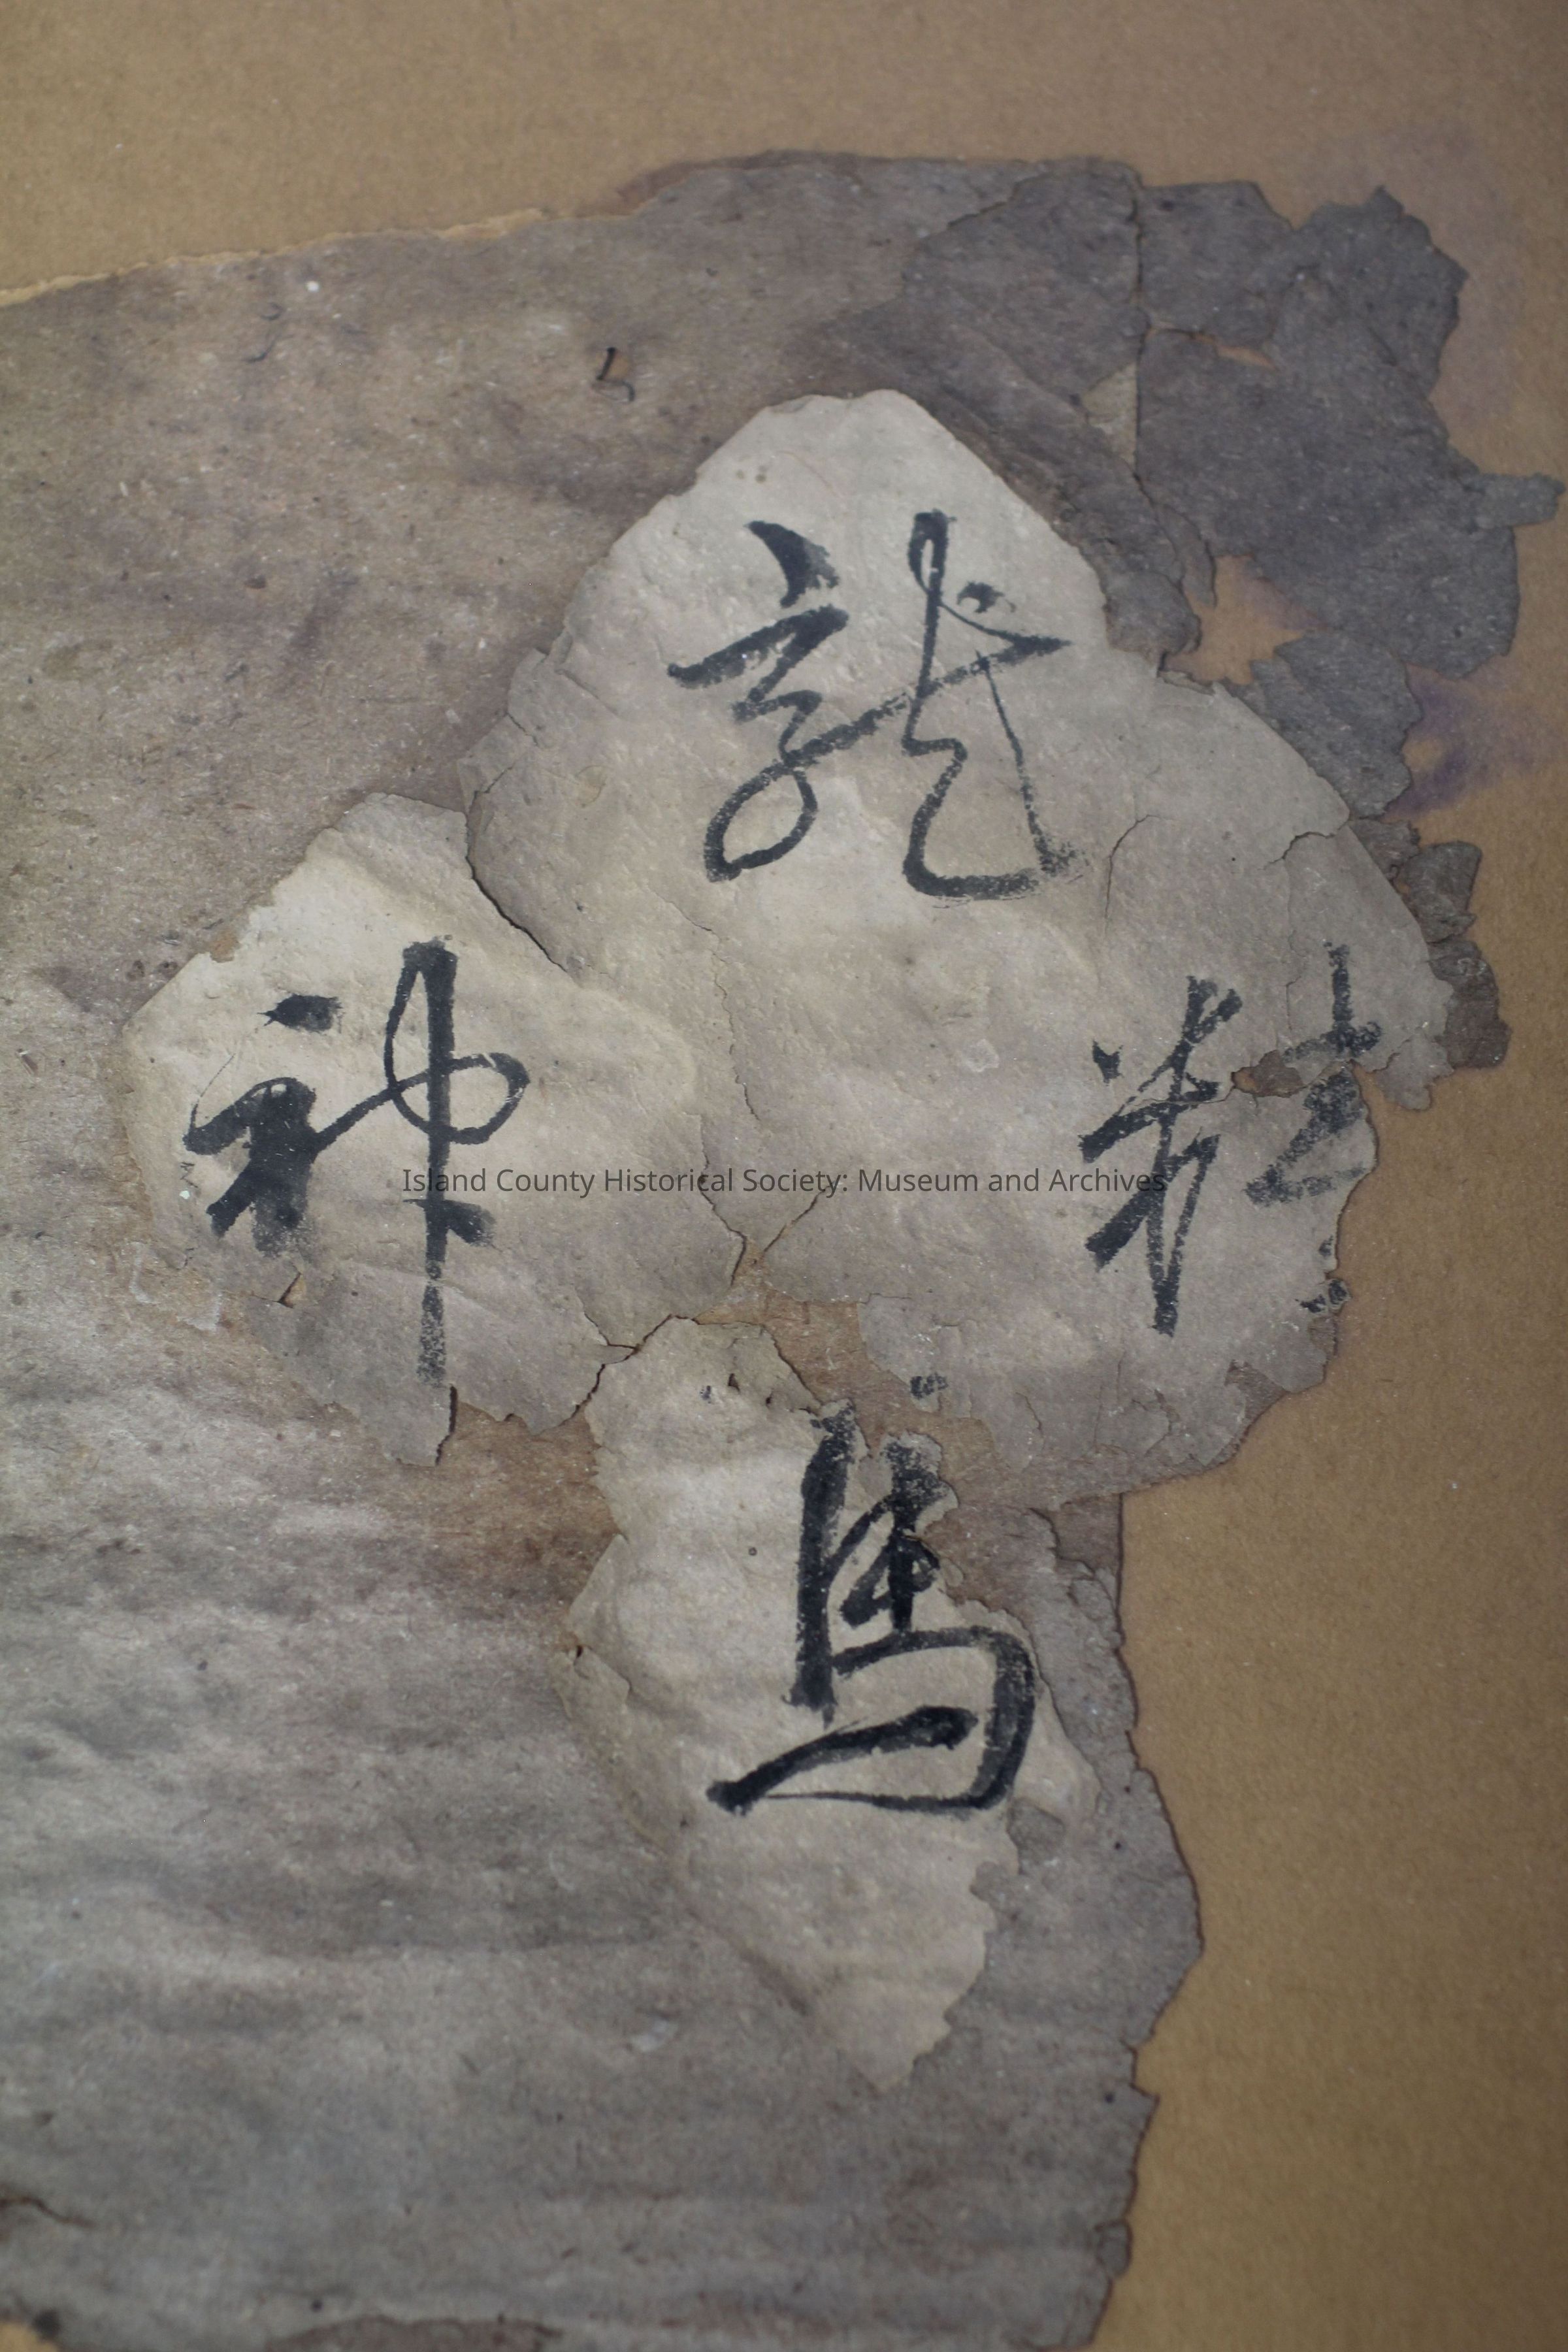 龍馬
精神
Island County Historical Society: Museum and Archives